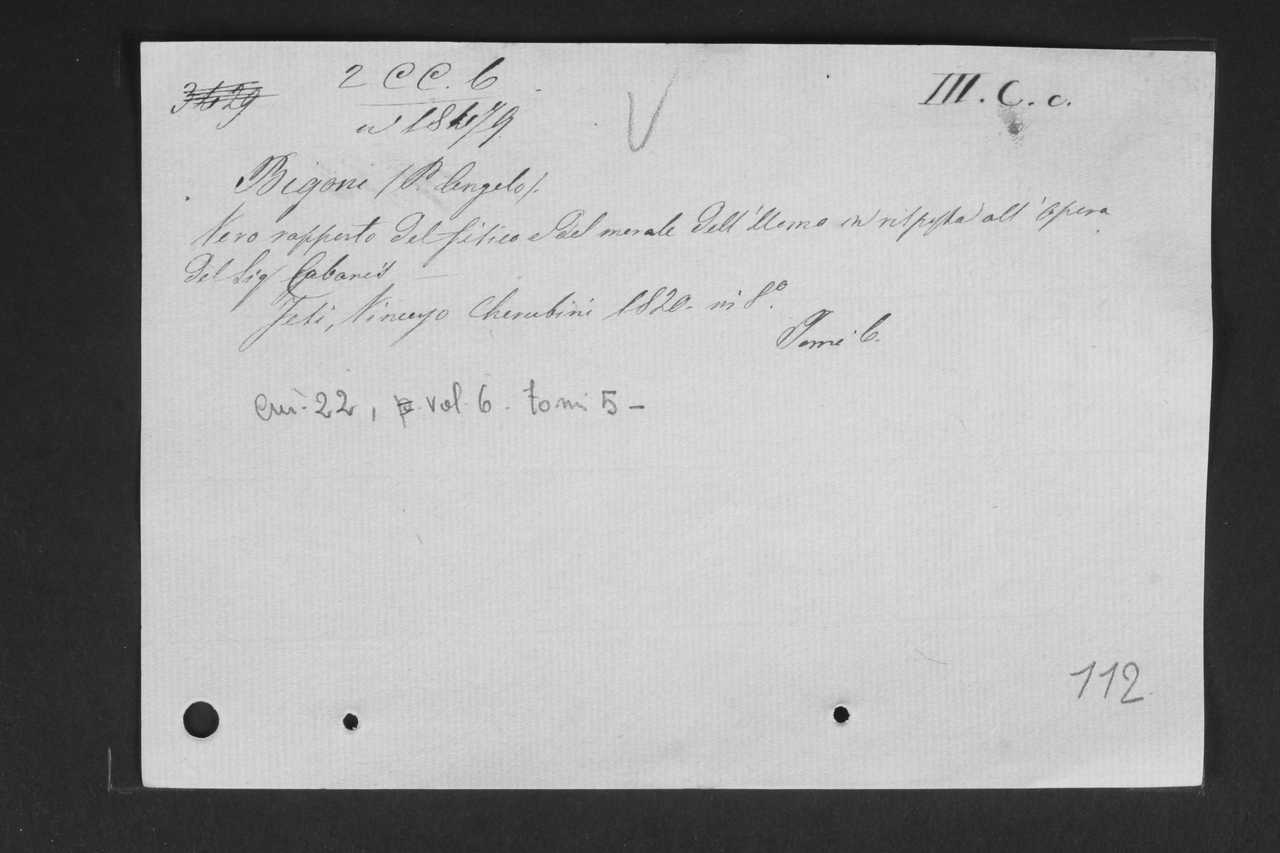 2 CC. 6
III. C. c.
Bigoni (P. Angelo).
Vero rapporto del fisico e del morale dell'Uomo in risposta all'opera
del Sig Cabanis —
Jesi, Vincenzo Cherubini 1820. in 8.º
Tomi 6.
22, vol. 6. tomi 5 —
112